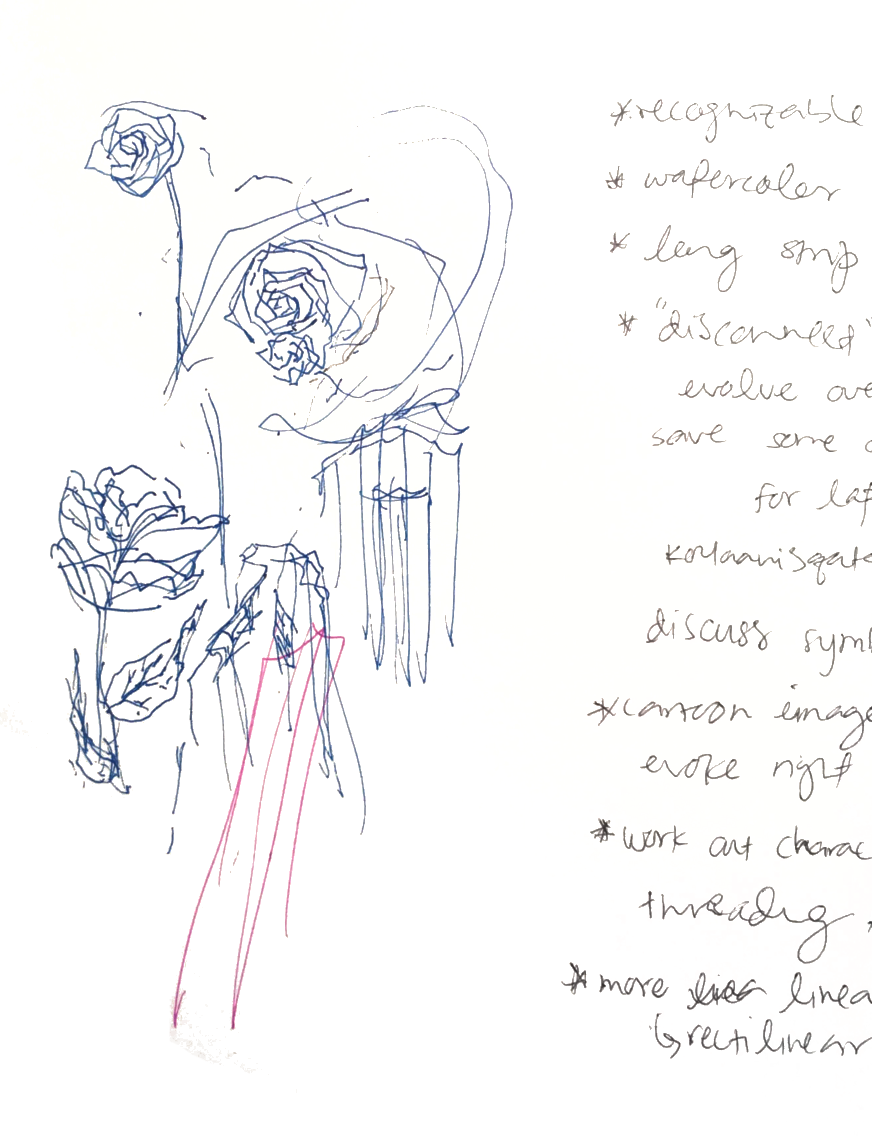 * recognizable
* watercolor
* long strip
* "disconnected"
evolve ove
save some
for lat
Koyaanisqats
discuss symb
* cartoon image
evoke right
* work out charac
threading
* more linea
↳ rectilinear